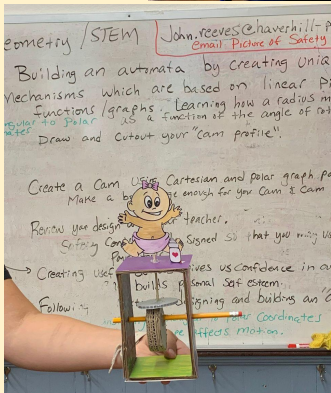 eometry / STEM
John.reeves@haverhill-p
email Picture of Safety
Building an automata by creating Uniq
Mechanisms which are based on linear Pi
functions / graphs. Learning how a radius m
gular to Polar as a function of the angle of rot
nates
Draw and Cutout your "cam profile".
Create a Cam Using Cartesian and polar graph pa
Make a b ge enough for your Cam & cam
Review your design teacher.
Safety Con Signed so that you may us
→ Creating Usef ives us confidence in ou
builds personal self esteem.
Followi signing and building an
Polar Coordinates
effects motion.